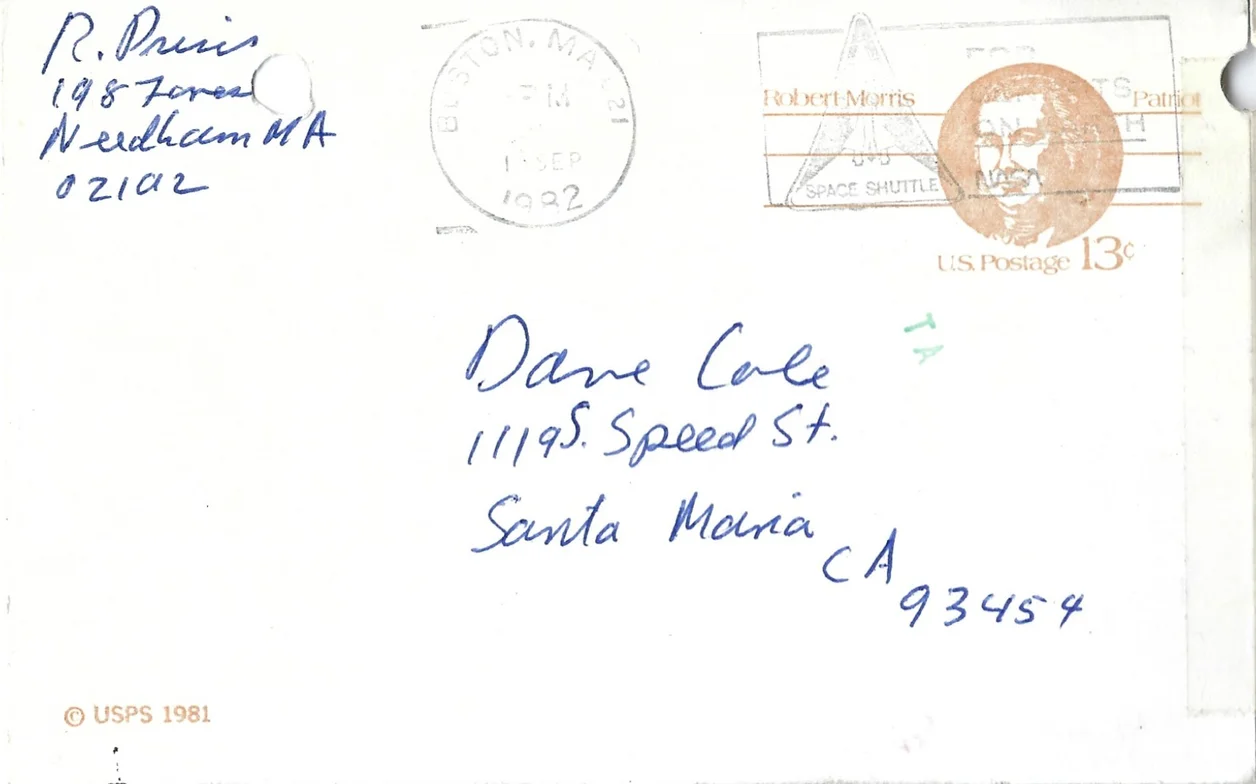 R. 
198 Fores
Needham MA
02192
BOSTON, MA 021
PM
SEP
1982
U.S.
SPACE SHUTTLE
NASA
Robert Morris
Patriot
U.S. Postage 13¢
TA
Dave Cole
1119 S. Speed St.
Santa Maria
CA
93454
© USPS 1981